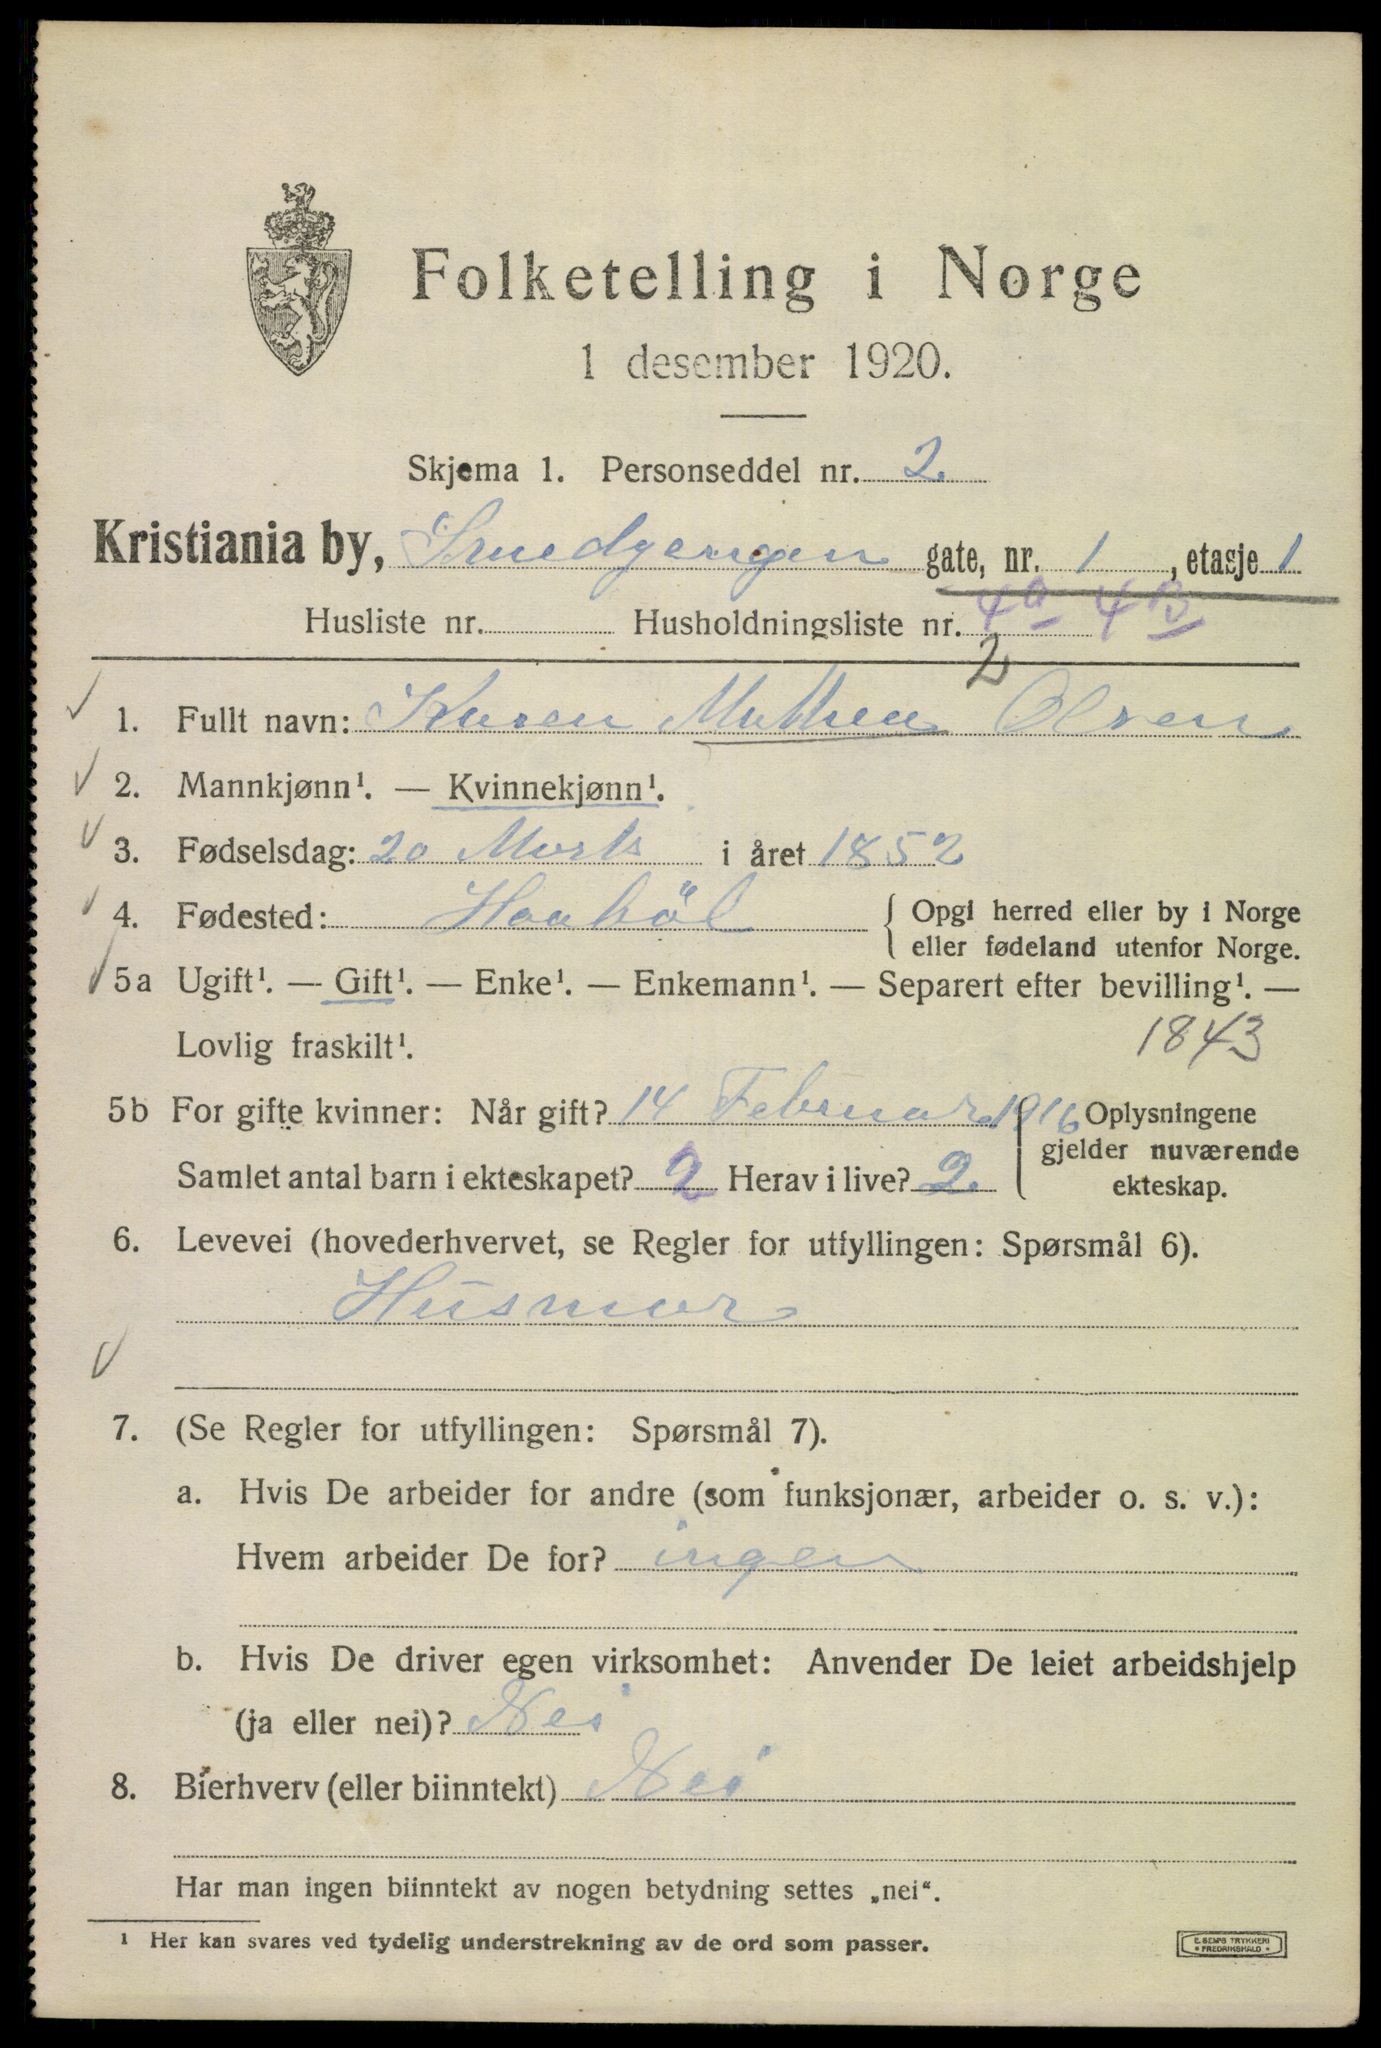 Folketelling i Norge
1 desember 1920.
Skjema 1. Personseddel nr. 2.
Kristiania by, Smedgengen gate, nr. 1, etasje 1
Husliste nr. Husholdningsliste nr. 4a 4B
2
1. Fullt navn: Karen Mathea Olsen
2. Mannkjønn¹. — Kvinnekjønn¹.
3. Fødselsdag: 20 Marts i året 1852
4. Fødested: Haabøl { Opgi herred eller by i Norge
eller fødeland utenfor Norge.
5a Ugift¹. — Gift¹. — Enke¹. — Enkemann¹. — Separert efter bevilling¹. —
Lovlig fraskilt¹. 1843
5b For gifte kvinner: Når gift? 14 Februar 1916 Oplysningene
gjelder nuværende
Samlet antal barn i ekteskapet? 2 Herav i live? 2. ekteskap.
6. Levevei (hovederhvervet, se Regler for utfyllingen: Spørsmål 6).
Husmor
7. (Se Regler for utfyllingen: Spørsmål 7).
a. Hvis De arbeider for andre (som funksjonær, arbeider o. s. v.):
Hvem arbeider De for? ingen
b. Hvis De driver egen virksomhet: Anvender De leiet arbeidshjelp
(ja eller nei)? Nei
8. Bierhverv (eller biinntekt) Nei
Har man ingen biinntekt av nogen betydning settes „nei“.
¹ Her kan svares ved tydelig understrekning av de ord som passer.
E. SEMS TRYKKERI
FREDRIKSHALD